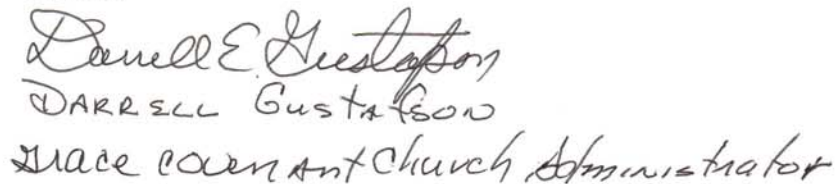 Darrell E. Gustafson
DARRELL GUSTAFSON
Grace Covenant Church Administrator